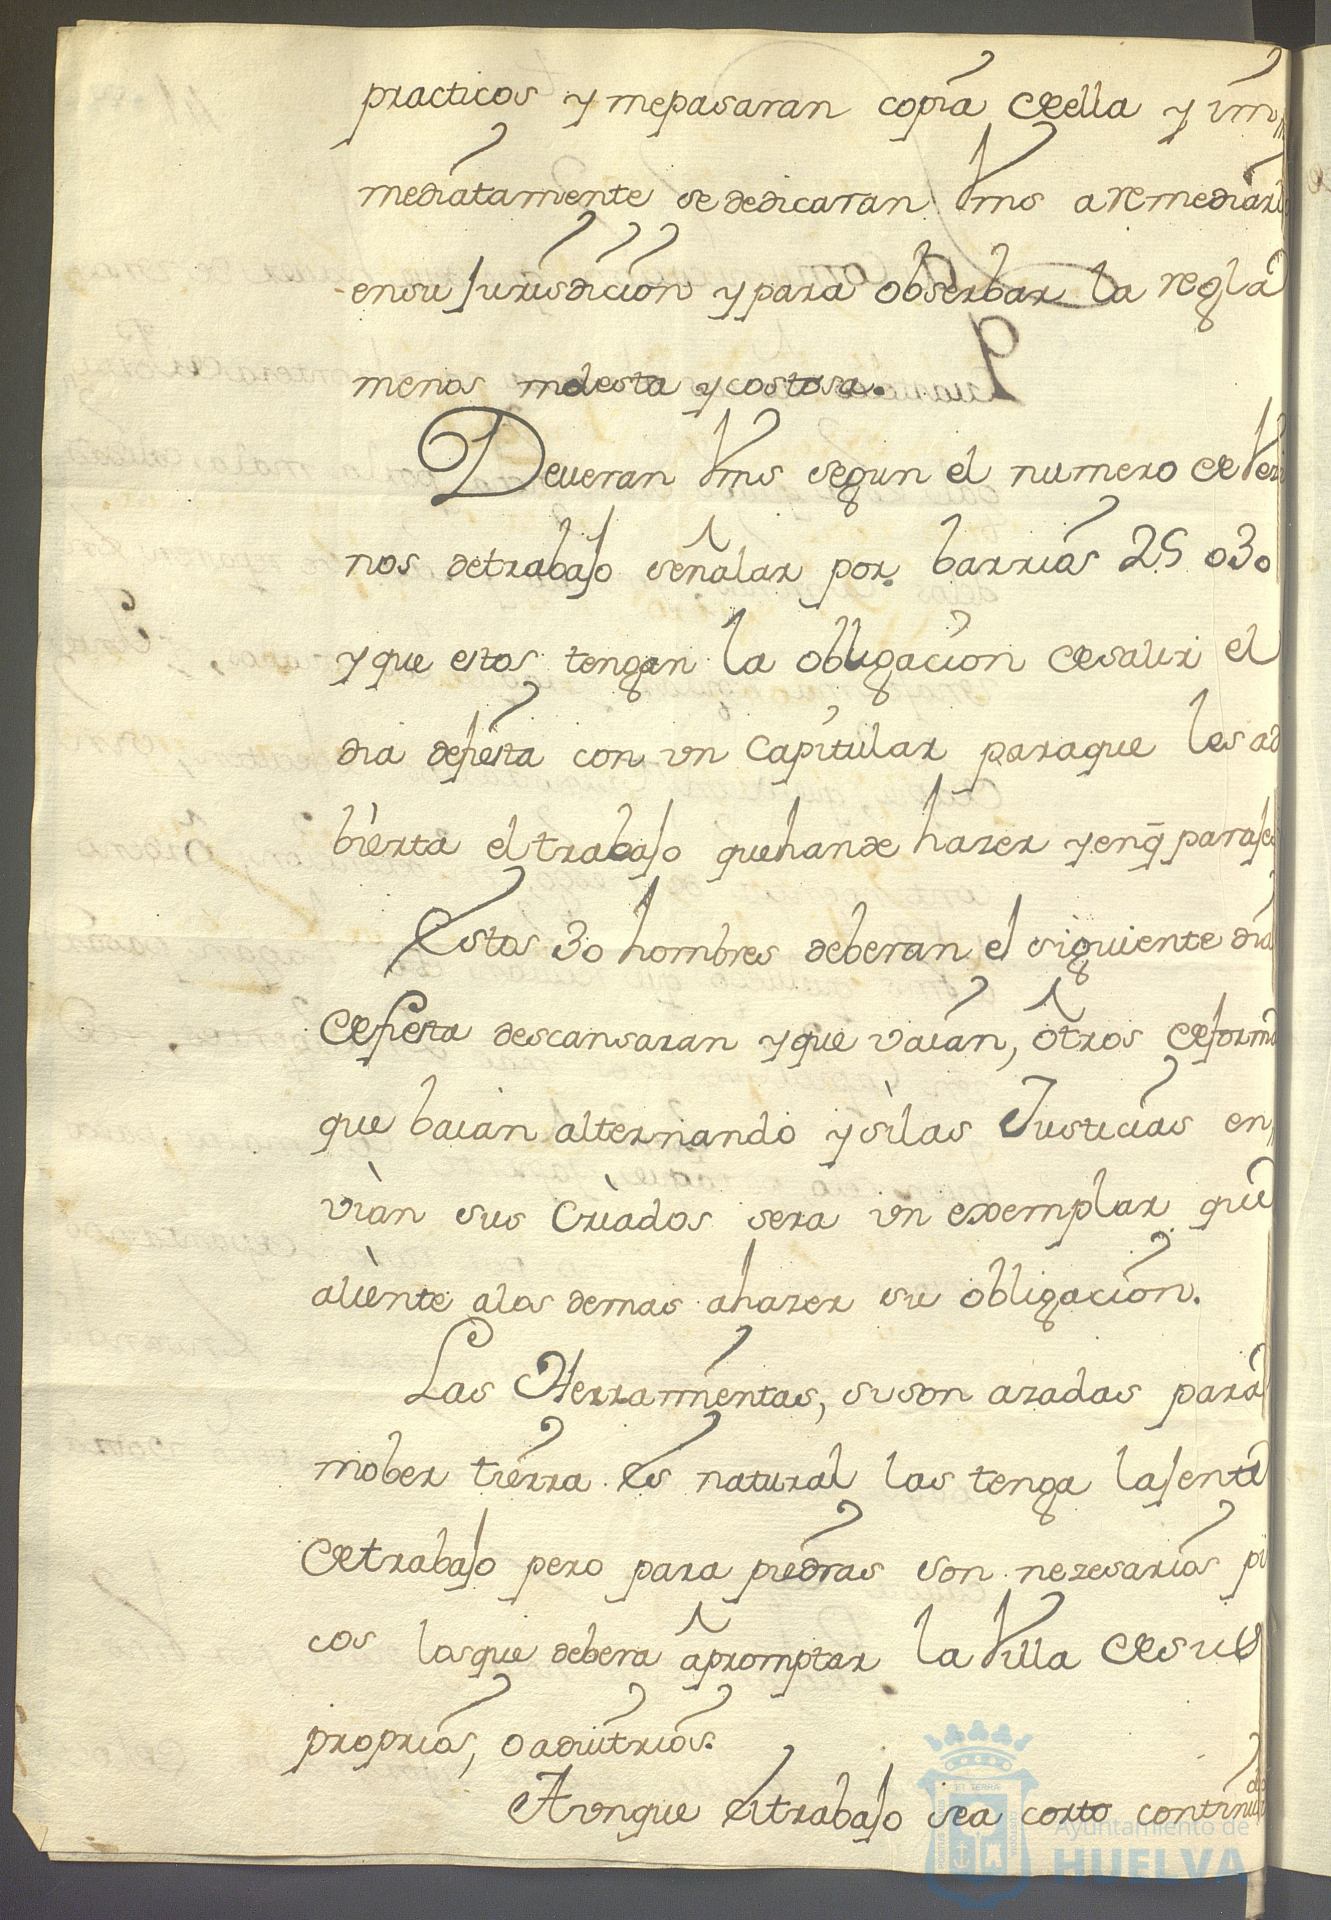 practicos y mepasaran copia deella y im„
mediatamente sededicaran Vms aremediarlo
ensu Jurisdicion y para obserbar la regla
menos molesta y costosa.
Deveran Vms segun el numero de Vezi
nos detrabajo señalar por barrios 25 o 30
y que estos tengan la obligacion desalir el
dia defiesta con vn Capitular paraque les ad
bierta el trabajo quehande hazer y enq̄ parajes
Estos 30 hombres deberan el siguiente dia
defiesta descansaran yque vaian, otros deforma
que baian alternando y silas Justicias en„
vian sus Criados sera vn exemplar que
aliente alos demas ahazer su obligacion.
Las Herramientas, sison azadas para
mober tierra es natural las tenga lajente
detrabajo pero para piedras son nezesarios pi
cos losque debera apromptar la Villa desus
proprios, o aduitrios.
Aunque eltrabajo sea corto continuado
Ayuntamiento de
HUELVA